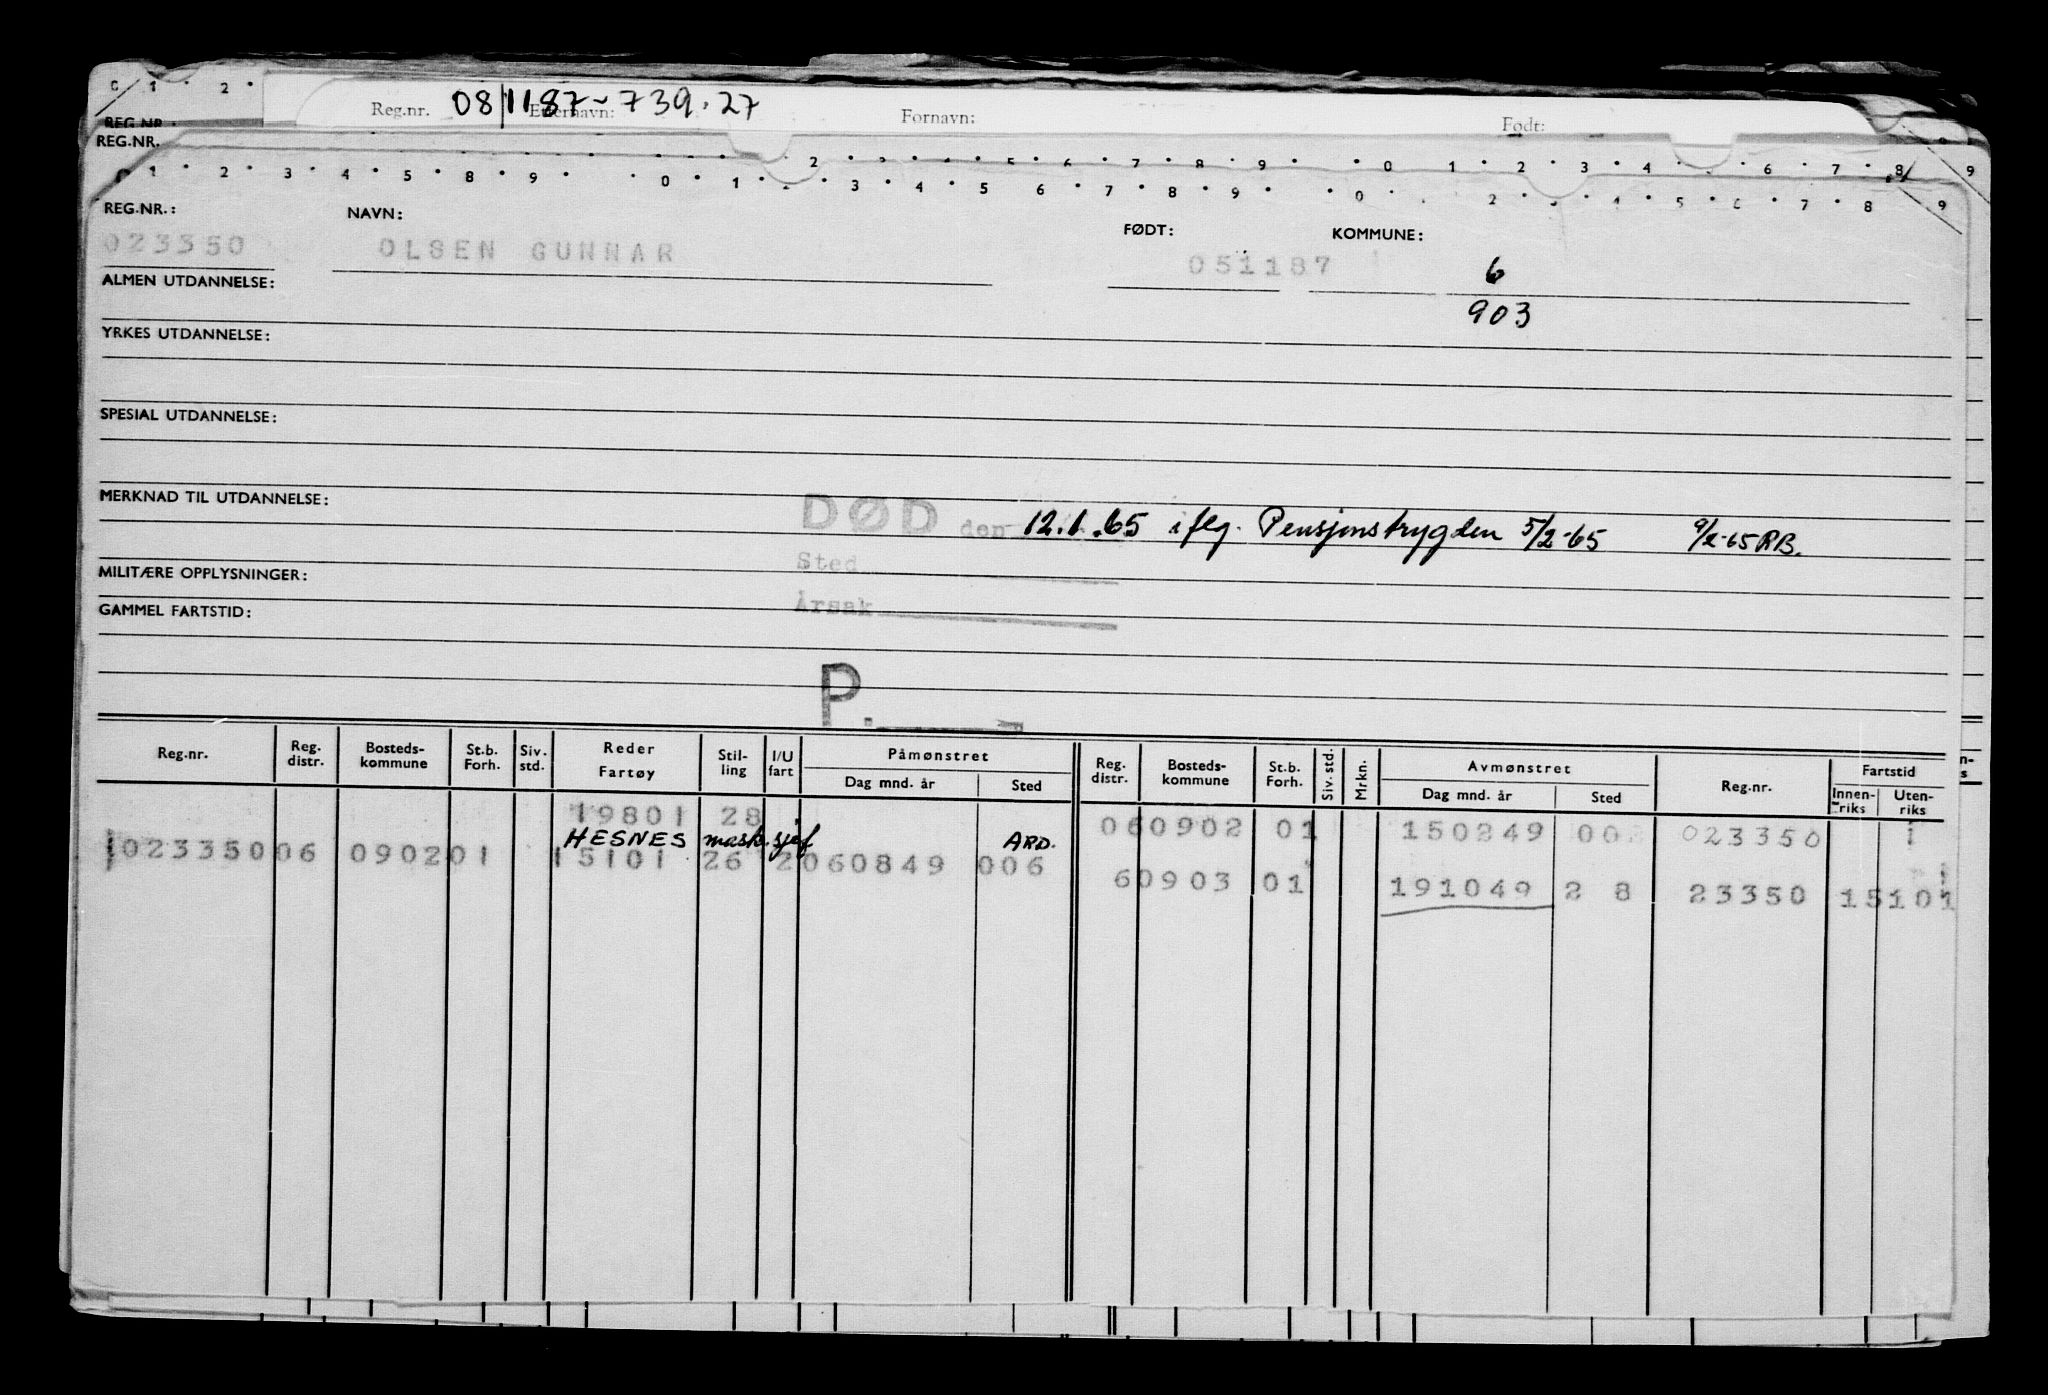 C 1 · 2 ·
Reg.nr. 08/1187-739.27 Etternavn: Fornavn: Født:
REG.NR.:
REG.NR.
2 · 3 · 4 · 5 · 6 · 7 · 8 · 9 · · 0 1 · 2 · 3 · 4 · 6 · 7 · 8 9
1 · 2 · 3 · 4 · 5 · 8 · 9 · · 0 · 1 · 2 · 3 · 4 · 5 6 · 7 · 8 · 9 · · 0 · 2 · 3 · 4 · 5 · 6 · 7 · 8 9
REG.NR.: NAVN: FØDT: KOMMUNE:
023350 OLSEN GUNNAR 051187 6
ALMEN UTDANNELSE: 903
YRKES UTDANNELSE:
SPESIAL UTDANNELSE:
MERKNAD TIL UTDANNELSE:
DØD den 12.1.65 iflg. Pensjonstrygden 5/2-65 9/2-65 RB.
Sted
MILITÆRE OPPLYSNINGER:
Årsak
GAMMEL FARTSTID:
P.
Reg.nr. Reg. distr. Bosteds-kommune St.b. Forh. Siv. std. Reder Fartøy Stil-ling I/U fart Påmønstret Dag mnd. år Sted Reg. distr. Bosteds-kommune St.b. Forh. Siv. std. Mrkn. Avmønstret Dag mnd. år Sted Reg.nr. Fartstid Innen-riks Uten-riks
19801 28 060902 01 150249 00 023350 1
HESNES mask.sjef ARD.
023350 06 0902 01 15101 26 2 060849 006
60903 01 191049 2 8 23350 15101